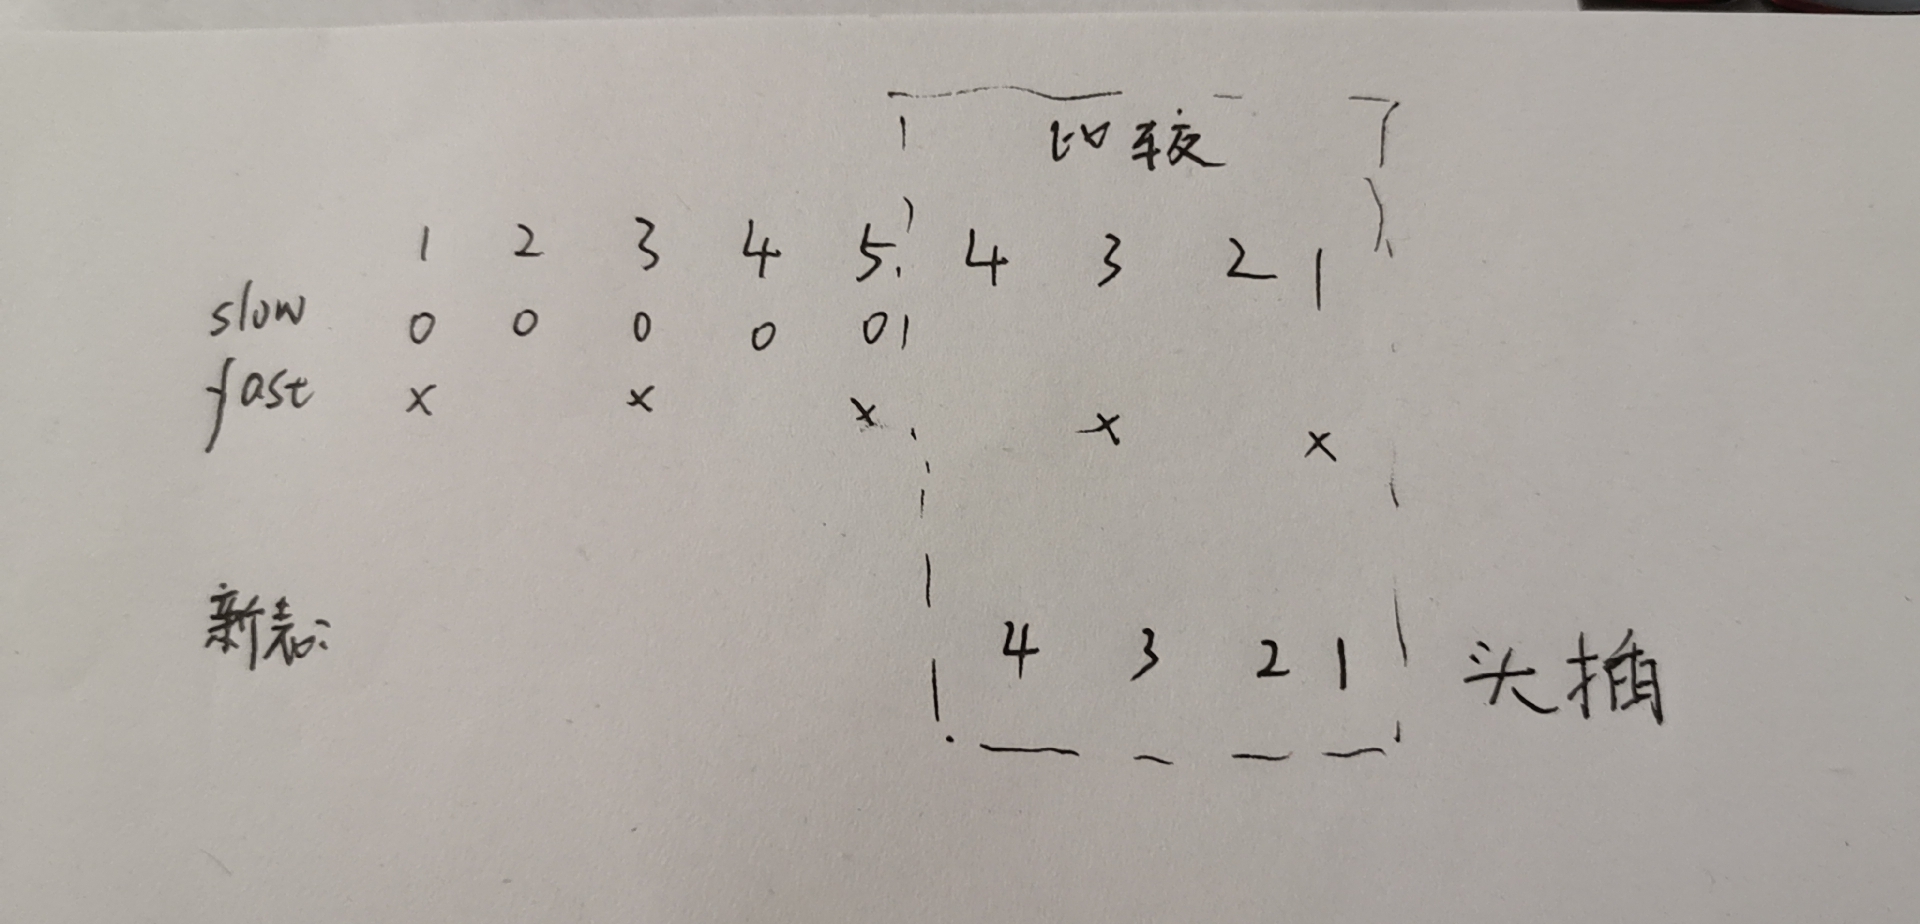 比较
1 2 3 4 5 4 3 2 1
slow 0 0 0 0 0
fast x x x x x
新表: 4 3 2 1 头插